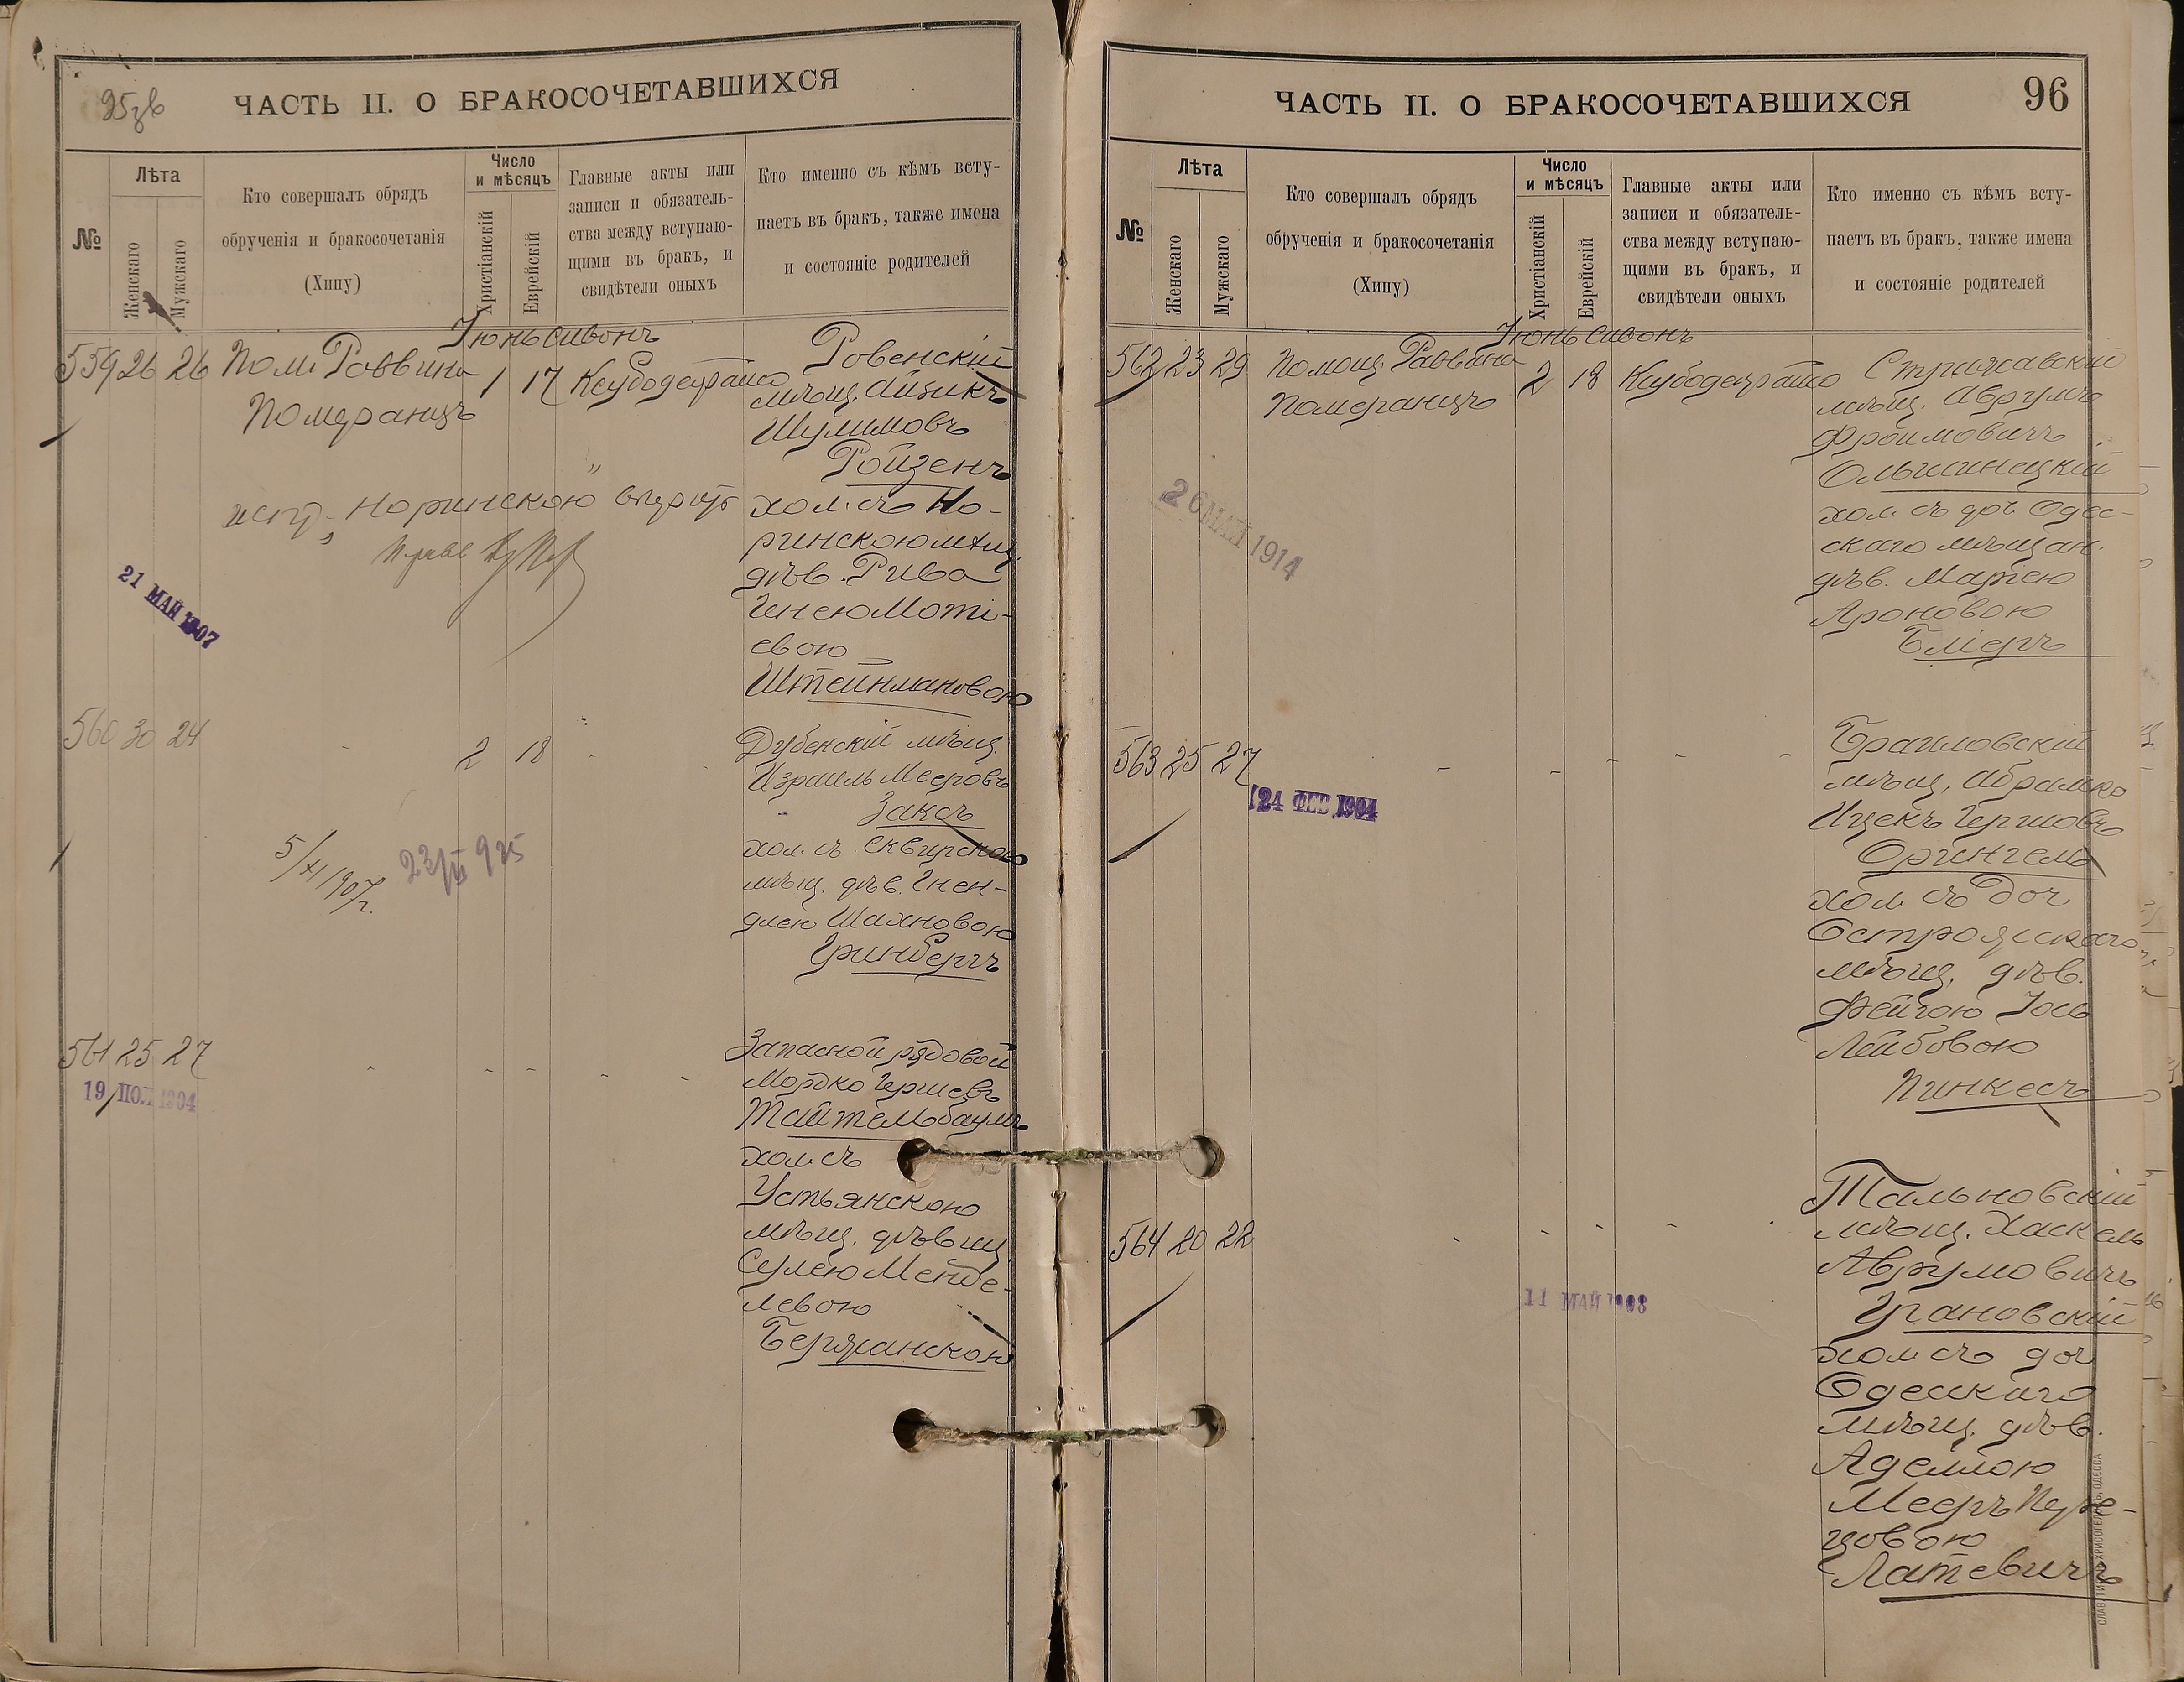 95зв
ЧАСТЬ II. О БРАКОСОЧЕТАВШИХСЯ
№
Лѣта
Женскаго
Мужскаго
Кто совершалъ обрядъ
обрученія и бракосочетанія
(Хипу)
Число
и мѣсяцъ
Христіанскій
Еврейскій
Главные акты или
записи и обязатель-
ства между вступаю-
щими въ бракъ, и
свидѣтели оныхъ
Кто именно съ кѣмъ всту-
паетъ въ бракъ, также имена
и состояніе родителей
Іюнь сивонъ
559 26 26 Пом. Раввина 1 17 Ксубодеграйто
Померанцъ
Ровенскій
мѣщ. Айзикъ
Шулимовъ
Ройзенъ
хол. съ Но-
ринскою мѣщ.
дѣв. Рива
Генею Моті-
евою
Штейнмановою
испр. Норинскою вѣрно
21 МАЙ 1907
560 30 24 2 18
Дубенскій мѣщ.
Израиль Мееровъ
Заксъ
хол. съ Сквирскою
мѣщ. дѣв. Гнен-
длею Шахновою
Гринбергъ
5/XI 1907г.
561 25 27
19 1904
Запасной рядовой
Мордко Гершевъ
Тайтельбаумъ
хол. съ
Устьянскою
мѣщ. дѣвиц.
Сулею Менде-
левою
Бержанскою
ЧАСТЬ II. О БРАКОСОЧЕТАВШИХСЯ
96
№
Лѣта
Женскаго
Мужскаго
Кто совершалъ обрядъ
обрученія и бракосочетанія
(Хипу)
Число
и мѣсяцъ
Христіанскій
Еврейскій
Главные акты или
записи и обязатель-
ства между вступаю-
щими въ бракъ, и
свидѣтели оныхъ
Кто именно съ кѣмъ всту-
паетъ въ бракъ, также имена
и состояніе родителей
Іюнь сивонъ
562 23 29 Помощ. Раввина 2 18 Ксубодеграйто
Померанцъ
Стрижавскій
мѣщ. Аврумъ
Фроимовичъ
Ольшинецкій
хол. съ доч. Одес-
скаго мѣщан.
дѣв. Маріею
Ароновою
Бліеръ
26 МАЙ 1914
563 25 27
24 ФЕВ 1904
Браиловскій
мѣщ. Абрамко
Ицекъ Гершовъ
Орингель
хол. съ доч.
Острожскаго
мѣщ. дѣв.
Фейгою Іось
Лейбовою
Пинкесъ
564 20 22
11 МАЙ 1908
Тальновскій
мѣщ. Хаскель
Аврумовичъ
Грановскій
хол. съ доч
Одесскаго
мѣщ. дѣв.
Аделлою
Мееръ Пере-
цовою
Латевичъ